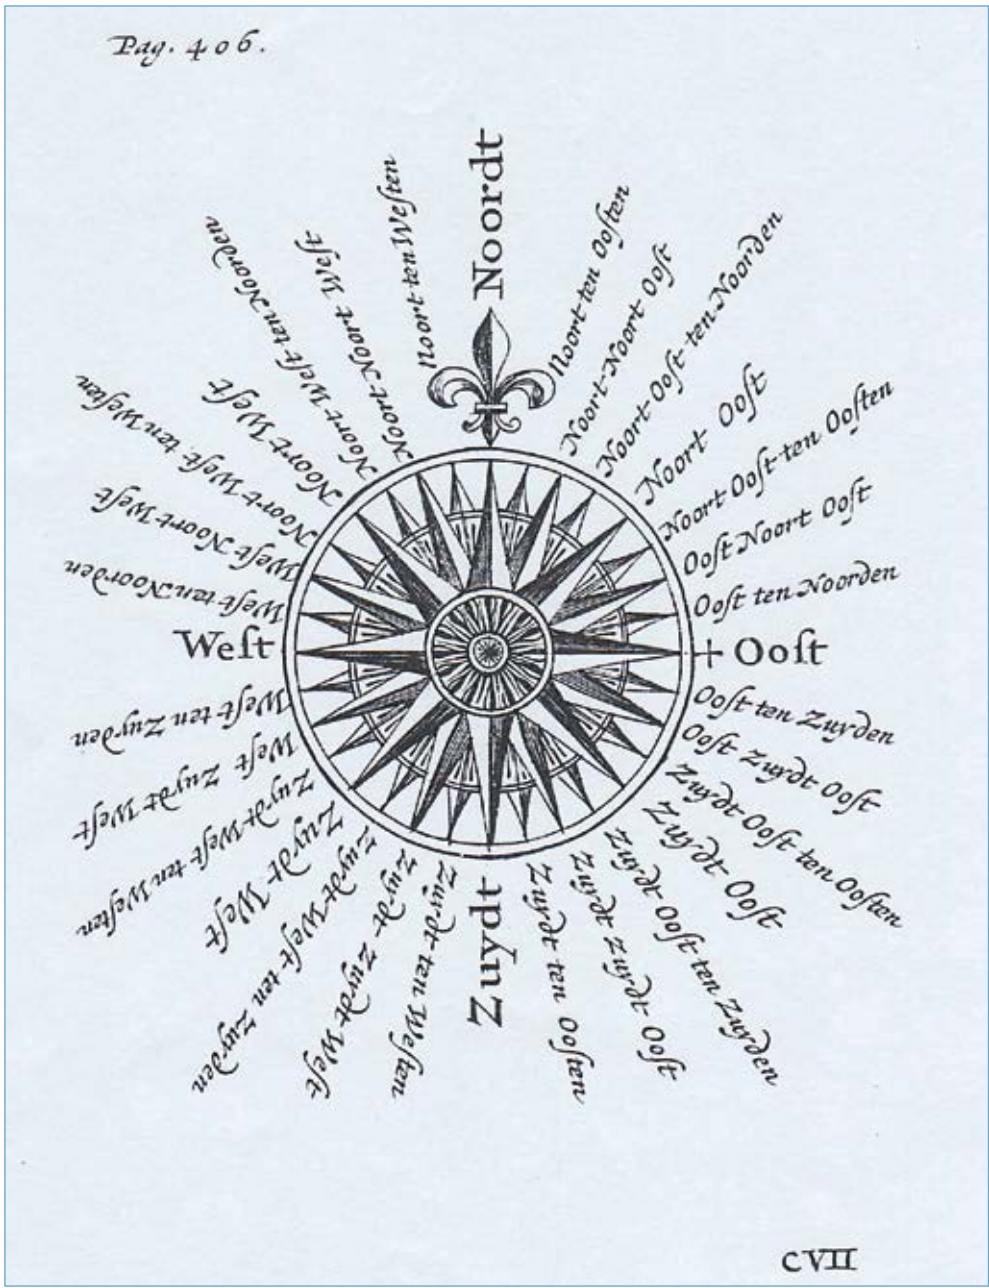 Pag. 406.
Noordt
Noort ten Ooſten
Noort Noort Ooſt
Noort Ooſt ten Noorden
Noort Ooſt
Noort Ooſt ten Ooſten
Ooſt Noort Ooſt
Ooſt ten Noorden
Ooſt
Ooſt ten Zuyden
Ooſt Zuydt Ooſt
Zuydt Ooſt ten Ooſten
Zuydt Ooſt
Zuydt Ooſt ten Zuyden
Zuydt Zuydt Ooſt
Zuydt ten Ooſten
Zuydt
Zuydt ten Weſten
Zuydt Zuydt Weſt
Zuydt Weſt ten Zuyden
Zuydt Weſt
Zuydt Weſt ten Weſten
Weſt Zuydt Weſt
Weſt ten Zuyden
Weſt
Weſt ten Noorden
Weſt Noort Weſt
Noort Weſt ten Weſten
Noort Weſt
Noort Weſt ten Noorden
Noort Noort Weſt
Noort ten Weſten
CVII